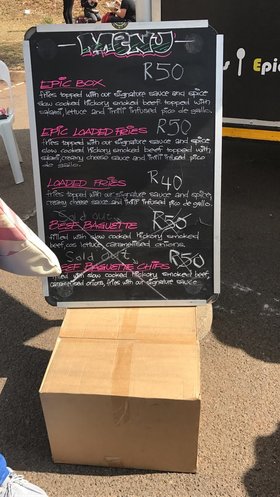 MENU
EPIC BOX R50
fries topped with our signature sauce and spice
slow cooked hickory smoked beef topped with
salami, lettuce and infused pico de gallo.
EPIC LOADED FRIES R50
fries topped with our signature sauce and spice
slow cooked hickory smoked beef topped with
salami, creamy cheese sauce and infused pico
de gallo.
LOADED FRIES R40
fries topped with our signature sauce and spice,
creamy cheese sauce and infused pico de gallo.
Sold out
BEEF BAGUETTE R50
filled with slow cooked hickory smoked
beef, cos lettuce, caramelised onions.
Sold out
BEEF BAGUETTE CHIPS R50
filled with slow cooked hickory smoked beef,
caramelised onions, fries with our signature sauce
Epic